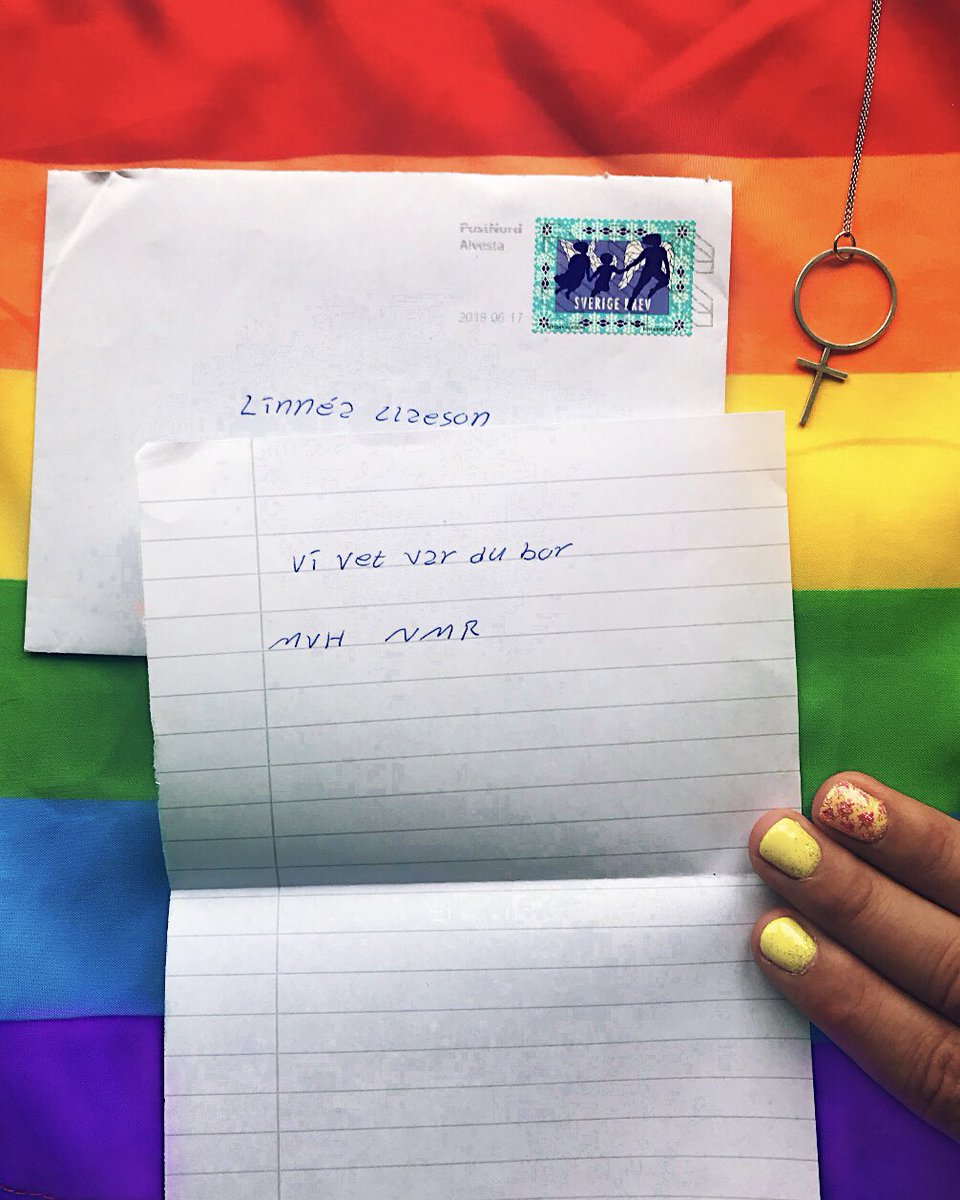 PostNord
Alvesta
2019 06 17
SVERIGE BREV
Linnéa Claeson
Vi vet var du bor
MVH NMR